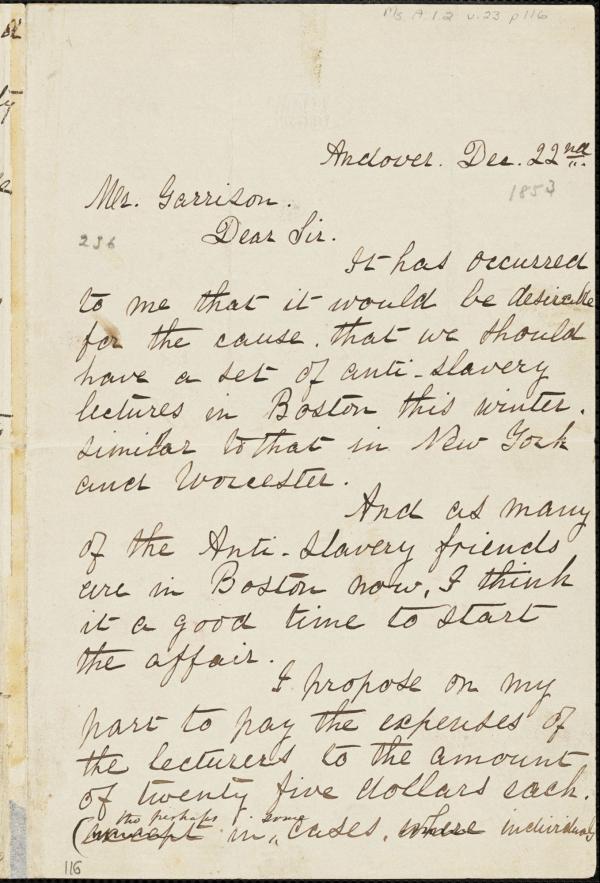 Ms. A.1.2 v.23 p116
Andover. Dec. 22nd.
1853
Mr. Garrison.
236
Dear Sir.
It has occurred
to me that it would be desirable
for the cause. that we should
have a set of anti-slavery
lectures in Boston this winter.
similar to that in New York
and Worcester.
And as many
of the Anti-slavery friends
are in Boston now, I think
it a good time to start
the affair.
I propose on my
part to pay the expenses of
the lecturers to the amount
of twenty five dollars each.
tho perhaps some
(except in cases. where individual
116